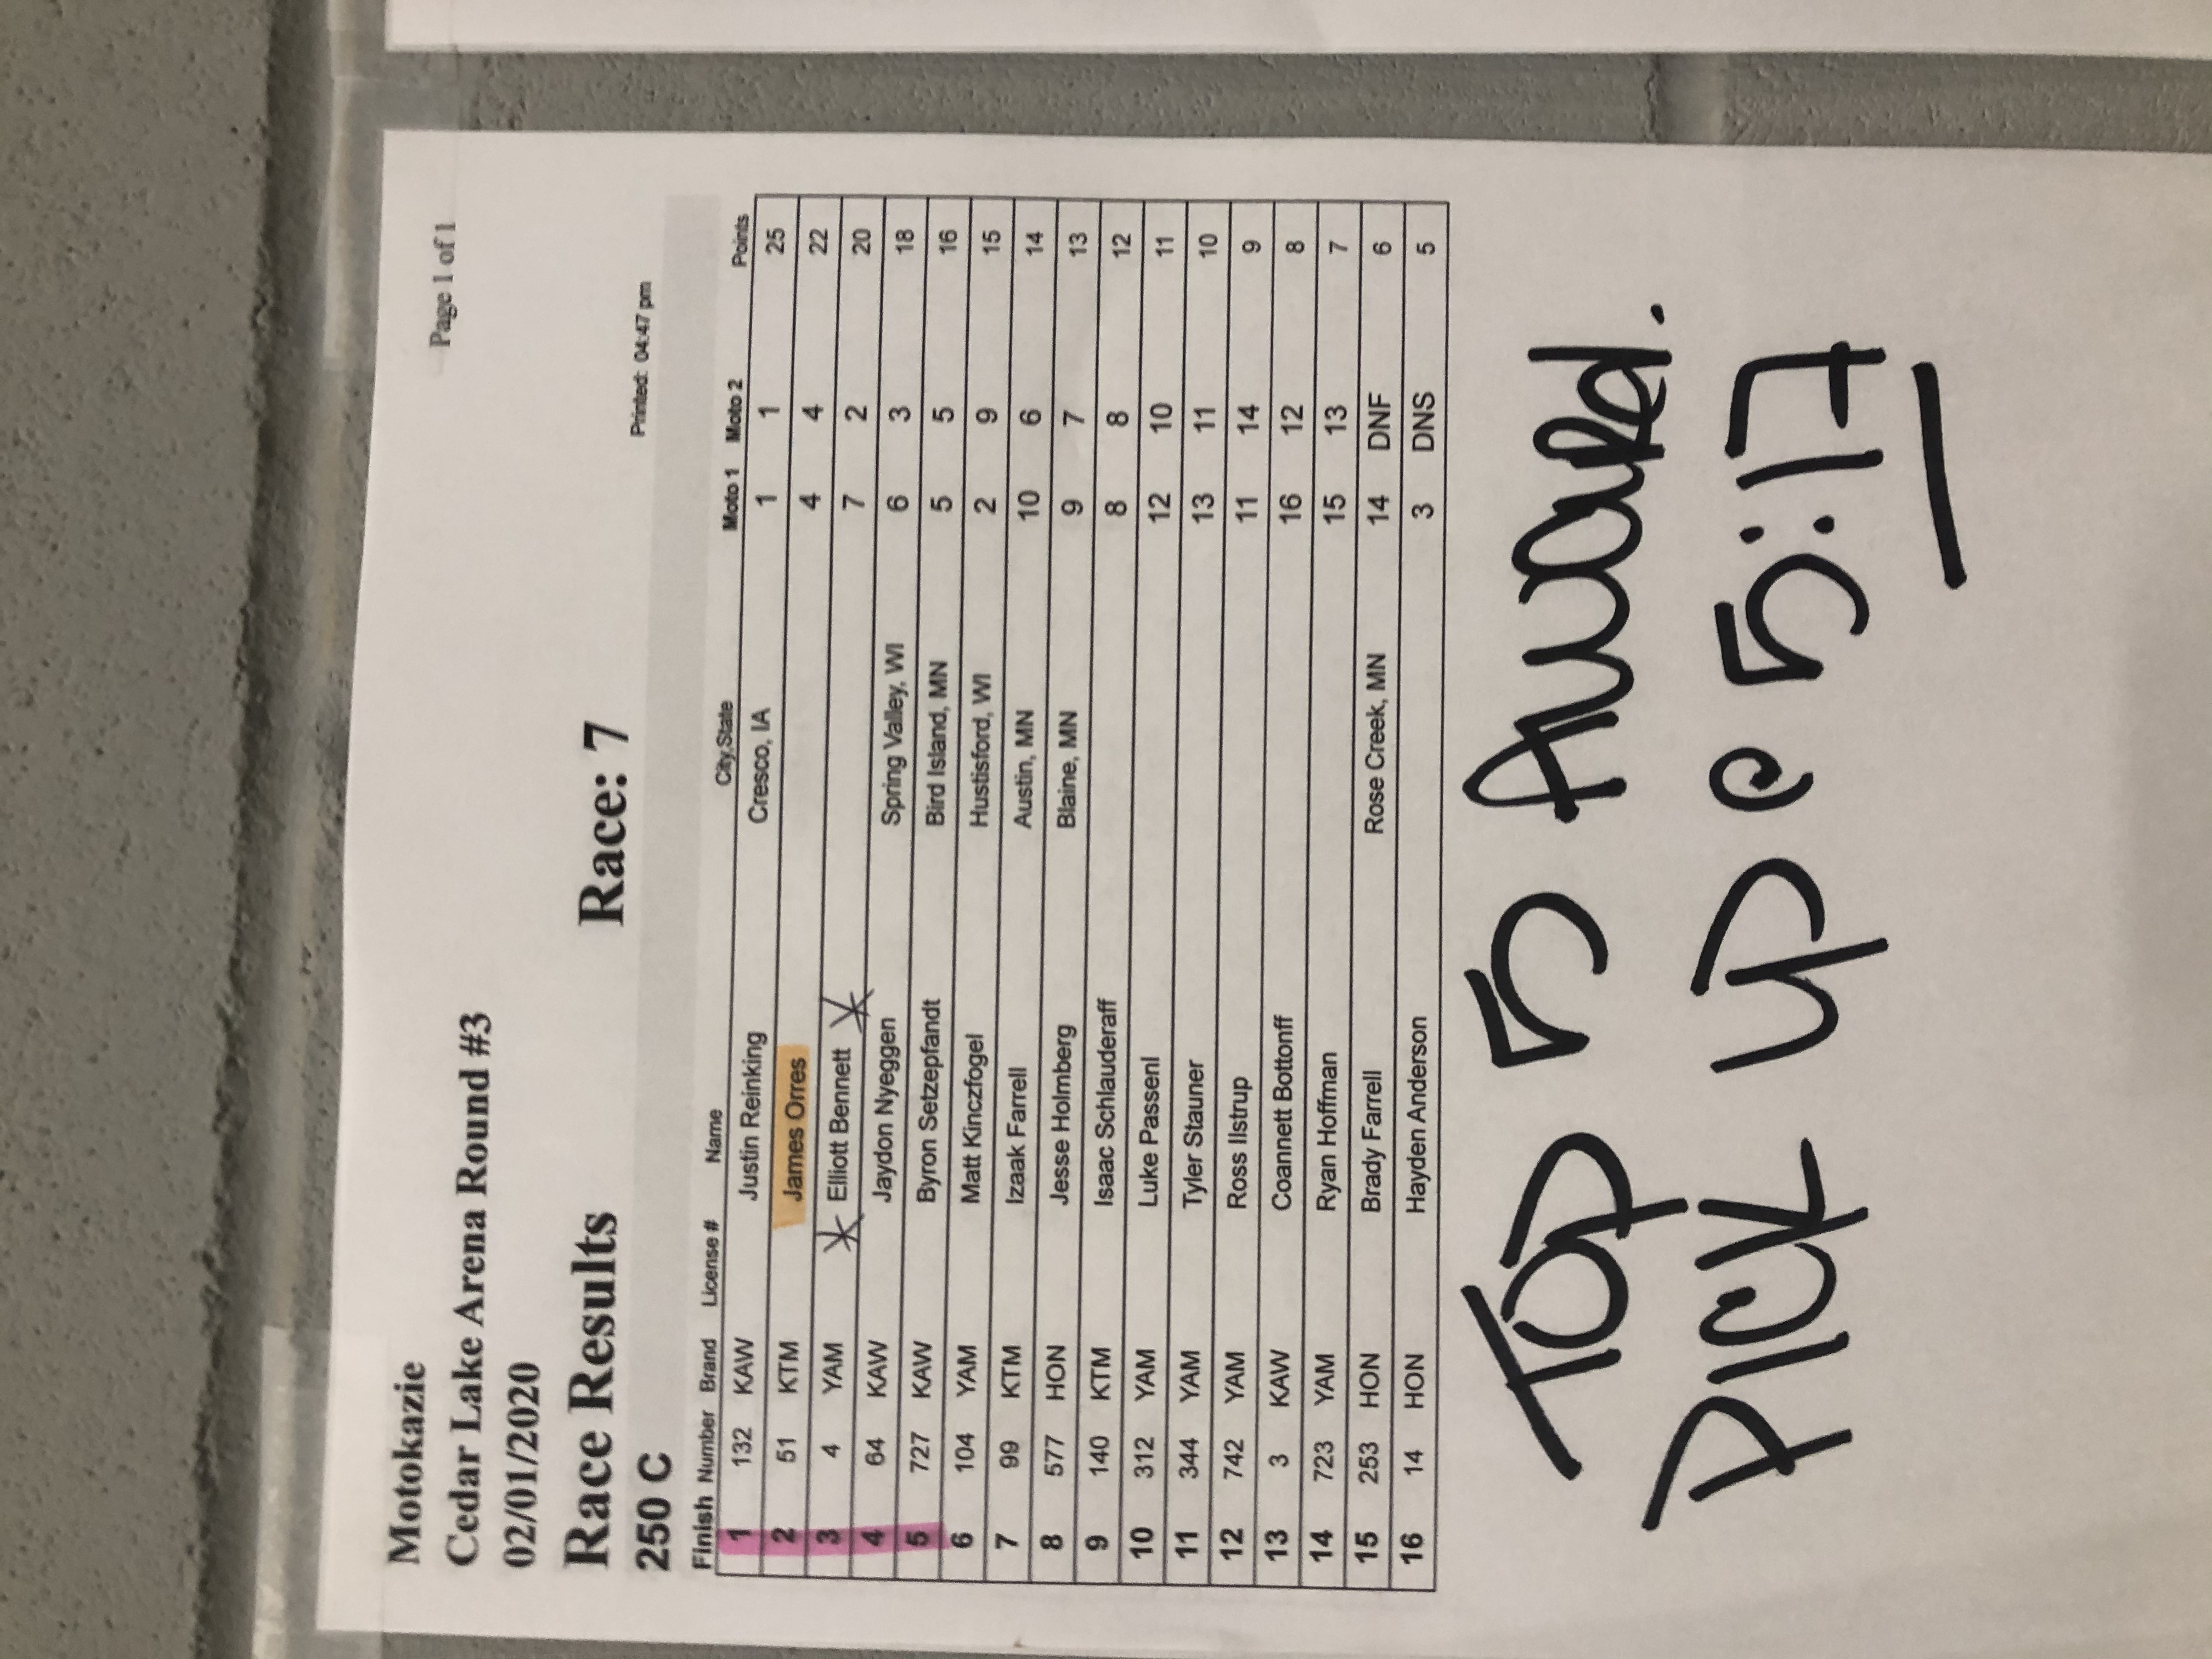 Page 1 of 1
Motokazie
Cedar Lake Arena Round #3
02/01/2020
Race Results Race: 7
250 C Printed: 04:47 pm
Finish Number Brand License # Name City,State Moto 1 Moto 2 Points
1 132 KAW Justin Reinking Cresco, IA 1 1 25
2 51 KTM James Orres 4 4 22
3 4 YAM Elliott Bennett 7 2 20
4 64 KAW Jaydon Nyeggen Spring Valley, WI 6 3 18
5 727 KAW Byron Setzepfandt Bird Island, MN 5 5 16
6 104 YAM Matt Kinczfogel Hustisford, WI 2 9 15
7 99 KTM Izaak Farrell Austin, MN 10 6 14
8 577 HON Jesse Holmberg Blaine, MN 9 7 13
9 140 KTM Isaac Schlauderaff 8 8 12
10 312 YAM Luke Passenl 12 10 11
11 344 YAM Tyler Stauner 13 11 10
12 742 YAM Ross Ilstrup 11 14 9
13 3 KAW Coannett Bottonff 16 12 8
14 723 YAM Ryan Hoffman 15 13 7
15 253 HON Brady Farrell Rose Creek, MN 14 DNF 6
16 14 HON Hayden Anderson 3 DNS 5
TOP 5 Award.
PICK UP @ 5:17